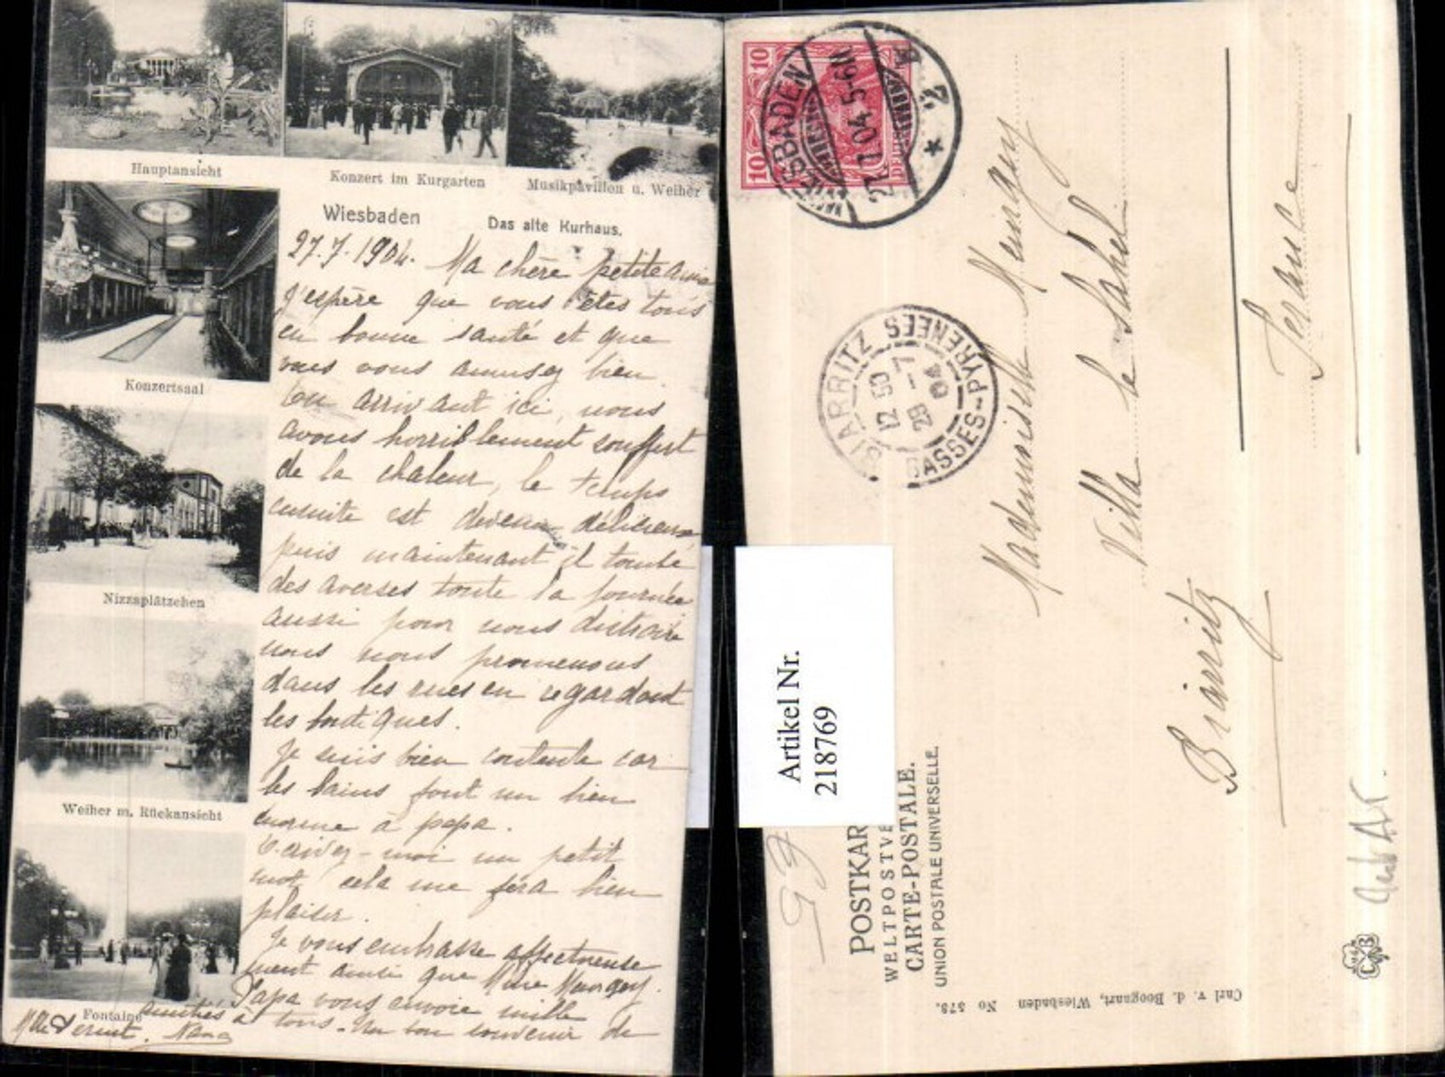 Hauptansicht
Konzert im Kurgarten
Musikpavillon u. Weiher
Wiesbaden
Das alte Kurhaus.
27.7.1904. Ma chère petite amie
J'espère que vous êtes tous
en bonne santé et que
vous vous amusez bien.
En arrivant ici, nous
avons horriblement souffert
de la chaleur, le temps
ensuite est devenu délicieux
puis maintenant il tombe
des averses toute la journée
aussi pour nous distraire
nous nous promenons
dans les rues en regardant
les boutiques.
Je suis bien contente car
les bains font un bien
énorme à papa.
Ecrivez-moi un petit
mot, cela me fera bien
plaisir.
Je vous embrasse affectueuse
ment ainsi que Mme
Papa vous envoie mille
amitiés à tous. Un bon souvenir de
Mlle
Nana
Konzertsaal
Nizzaplätzchen
Weiher m. Rückansicht
Fontaine
10 10
WIESBADEN
27.7.04. 5-6N
* 2
BIARRITZ
BASSES-PYRENEES
12 50
29 -7
04
Mademoiselle
Villa le Sahel
Biarritz
France
Artikel Nr.
218769
POSTKAR
WELTPOSTVE
CARTE-POSTALE.
UNION POSTALE UNIVERSELLE.
Carl v. d. Boogaart, Wiesbaden No 573.